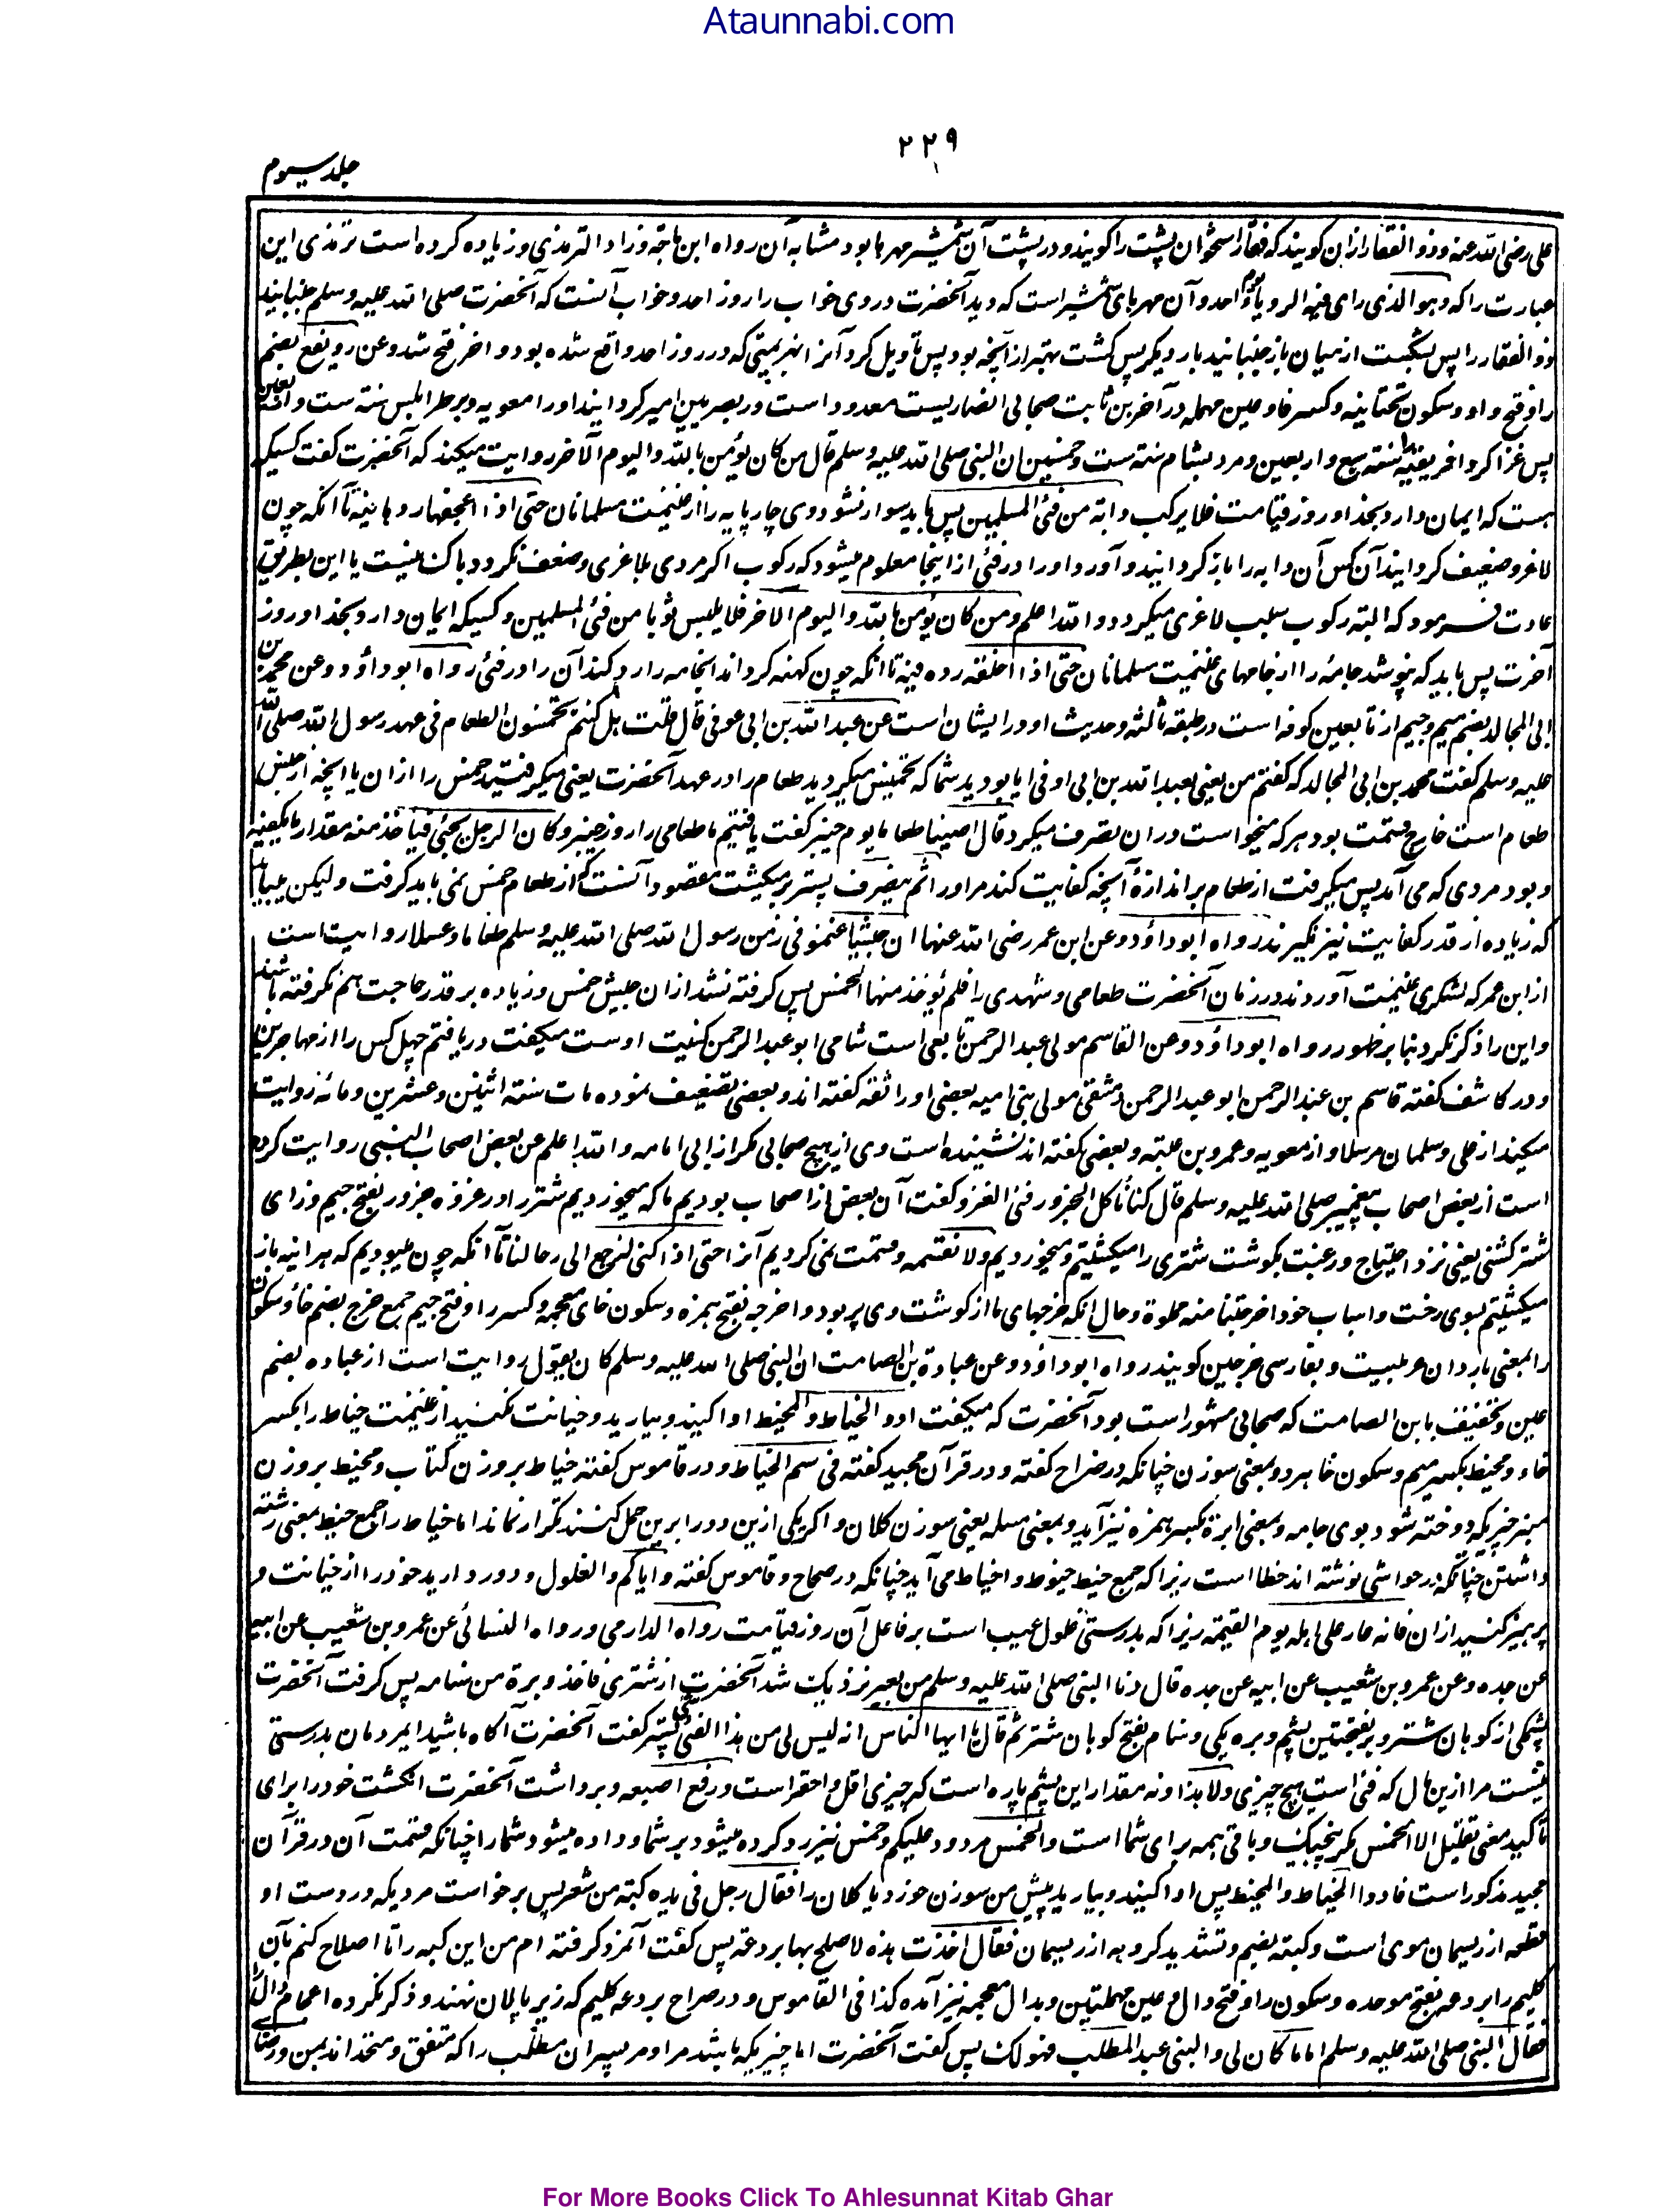 Ataunnabi.com
۲۲۹
جلد سیوم
علی رضی الله عنه و ذو الفقار ازان گویند که فقار استخوان پشت را گویند و در پشت آن شمشیر مهرها بود مشابه آن رواه ابن ماجة و زاد الترمذی و زیاده کرده است ترمذی این
عبارت را که و هو الذی رای فیه الرویا یوم احد و آن مهرهای شمشیر است که دید آنحضرت در وی خواب را روز احد و خواب آنست که آنحضرت صلی الله علیه وسلم جنبانید
ذو الفقار را پس بشکست از میان باز جنبانید بار دیگر پس گشت بهتر از آنچه بود پس تاویل کرد آنرا بهزیمتی که در روز احد واقع شده بود و آخر فتح شد و عن رویفع بضم
را و فتح واو و سکون تحتانیه و کسر فا و عین مهمله در آخر بن ثابت صحابی انصاریست معدود است در بصریین امیر گردانید او را معویه بر طرابلس سنة ست و اربعین
پس غزا کرد افریقیه سنة سبع و اربعین و مرد بشام سنة ست و خمسین ان النبی صلی الله علیه وسلم قال من کان یؤمن بالله و الیوم الآخر روایت میکند که آنحضرت گفت کسیکه
هست که ایمان دارد بخدا و روز قیامت فلا یرکب دابة من فئ المسلمین پس باید سوار نشود وی چارپایه را از غنیمت مسلمانان حتی اذا اعجفها ردها فیه تا آنکه چون
لاغر و ضعیف گردانید آن کس آن دابه را باز گردانید و آورد او را در فئ از اینجا معلوم میشود که رکوب اگر مردی بلاغری و ضعف نگردد باک نیست یا این بطریق
عادت فرمود که البته رکوب سبب لاغری میگردد و الله اعلم و من کان یؤمن بالله و الیوم الآخر فلا یلبس ثوبا من فئ المسلمین و کسیکه ایمان دارد بخدا و روز
آخرت پس باید که نپوشد جامه را از جامهای غنیمت مسلمانان حتی اذا اخلقه رده فیه تا آنکه چون کهنه گرداند آنجامه را رد کند آن را در فئ رواه ابو داؤد و عن محمد بن
ابی المجالد بضم میم و جیم از تابعین کوفه است در طبقه ثالثه و حدیث او در ایشان است عن عبد الله بن ابی اوفی قال قلت هل کنتم تخمسون الطعام فی عهد رسول الله صلی الله
علیه وسلم گفت محمد بن ابی المجالد که گفتم من یعنی بعبد الله بن ابی اوفی آیا بودید شما که تخمیس میکردید طعام را در عهد آنحضرت یعنی میگرفتید خمس را ازان یا آنچه از جنس
طعام است خارج قسمت بود هر که میخواست دران تصرف میکرد قال اصبنا طعاما یوم خیبر گفت یافتیم ما طعامی را روز خیبر و کان الرجل یجئ فیاخذ منه مقدار ما یکفیه
و بود مردی که می آمد پس میگرفت از طعام بر اندازهٔ آنچه کفایت کند مر او را ثم ینصرف پستر برمیگشت مقصود آنست که از طعام خمس نمی باید گرفت و لیکن میباید
که زیاده از قدر کفایت نیز نگیرند رواه ابو داؤد و عن ابن عمر رضی الله عنهما ان جیشا غنموا فی زمن رسول الله صلی الله علیه وسلم طعاما و عسلا روایت است
از ابن عمر که لشکری غنیمت آوردند در زمان آنحضرت طعامی و شهدی را فلم یؤخذ منها الخمس پس گرفته نشد ازان جیش خمس و زیاده بر قدر حاجت هم نگرفته باشند
و این را ذکر نکرد بنا بر ظهور رواه ابو داؤد و عن القاسم مولی عبد الرحمن تابعی است شامی ابو عبد الرحمن کنیت اوست میگفت دریافتم چهل کس را از مهاجرین
و در کاشف گفته قاسم بن عبد الرحمن ابو عبد الرحمن دمشقی مولی بنی امیه بعضی او را ثقه گفته اند و بعضی تضعیف نموده مات سنة اثنین و عشرین و مائه روایت
میکند از علی و سلمان مرسلا و از معویه و عمرو بن عبسه و بعضی گفته اند نشنیده است وی از هیچ صحابی مگر از ابی امامه و الله اعلم عن بعض اصحاب النبی روایت کرده
است از بعض اصحاب پیغمبر صلی الله علیه وسلم قال کنا نأکل الجزور فی الغزو گفت آن بعض از اصحاب بودیم ما که میخوردیم شتر را در غزوه جزور بفتح جیم و زای
شتر کشتنی یعنی نزد احتیاج و رغبت بگوشت شتری را میکشتیم و میخوردیم و لا نقسمه و قسمت نمی کردیم آنرا حتی اذا کنا لنرجع الی رحالنا تا آنکه چون میبودیم که هر آینه باز
میگشتیم بسوی رخت و اسباب خود و اخرجتنا منه مملوة و حال آنکه خرجهای ما از گوشت وی پر بود و اخرجه بفتح همزه و سکون خای معجمه و کسر را و فتح جیم جمع خرج بضم خا و سکون
را بمعنی باردان عربیست و بفارسی خرجین گویند رواه ابو داؤد و عن عبادة بن الصامت ان النبی صلی الله علیه وسلم کان یقول روایت است از عباده بضم
عین و تخفیف با بن الصامت که صحابی مشهور است بود آنحضرت که میگفت ادوا الخیاط و المخیط ادا کنید و بیارید و خیانت نکنید از غنیمت خیاط را بکسر
خاء و مخیط بکسر میم و سکون خا هر دو بمعنی سوزن چنانکه در صراح گفته و در قرآن مجید گفته فی سم الخیاط و در قاموس گفته خیاط بروزن کتاب و مخیط بروزن
منبر چیزیکه دوخته شود بوی جامه و بمعنی ابرة بکسر همزه نیز آید و بمعنی مسله یعنی سوزن کلان و اگر یکی ازین دو را برین حمل کنند تکرار نماند اما خیاط را جمع خیط بمعنی رشته
داشتن چنانکه در حواشی نوشته اند خطا است زیرا که جمع خیط خیوط و اخیاط می آید چنانکه در صحاح و قاموس گفته و ایاکم و الغلول و دور دارید خود را از خیانت و
پرهیز کنید ازان فانه عار علی اهله یوم القیمة زیرا که بدرستی غلول عیب است بر فاعل آن روز قیامت رواه الدارمی و رواه النسائی عن عمرو بن شعیب عن ابیه
عن جده و عن عمرو بن شعیب عن ابیه عن جده قال دنا النبی صلی الله علیه وسلم من بعیر نزدیک شد آنحضرت از شتری فاخذ وبرة من سنامه پس گرفت آنحضرت
پشمکی از کوهان شتر وبر بفتحتین پشم وبره یکی و سنام بفتح کوهان شتر ثم قال یا ایها الناس انه لیس لی من هذا الفئ شئ پستر گفت آنحضرت آگاه باشید ای مردمان بدرستی
نیست مرا ازین مال که فئ است هیچ چیزی و لا هذا و نه مقدار این پشم پاره است که چیزی اقل و احقر است و رفع اصبعه و برداشت آنحضرت انگشت خود را برای
تأکید معنی تقلیل الا الخمس مگر پنجیک و باقی همه برای شما است و الخمس مردود علیکم و خمس نیز رد کرده میشود بر شما و داده میشود شما را چنانکه قسمت آن در قرآن
مجید مذکور است فادوا الخیاط و المخیط پس ادا کنید و بیارید پیش من سوزن خورد یا کلان را فقام رجل فی یده کبة من شعر پس برخاست مردیکه در دست او
قطعه از ریسمان موی است و کبه بضم و تشدید گروهه از ریسمان فقال اخذت هذه لاصلح بها بردعة پس گفت آنمرد گرفته ام من این کبه را تا اصلاح کنم بآن
گلیم را بردعه بفتح موحده و سکون را و فتح دال و عین مهملتین و بدال معجمه نیز آمده کذا فی القاموس و در صراح بردعه گلیم که زیر پالان نهند و ذکر نکرده اعجام دال را
فقال النبی صلی الله علیه وسلم اما ما کان لی و لبنی عبد المطلب فهو لک پس گفت آنحضرت اما چیزیکه باشد مرا و مر پسران مطلب را که متفق و متحد اند بمن و رضای
For More Books Click To Ahlesunnat Kitab Ghar